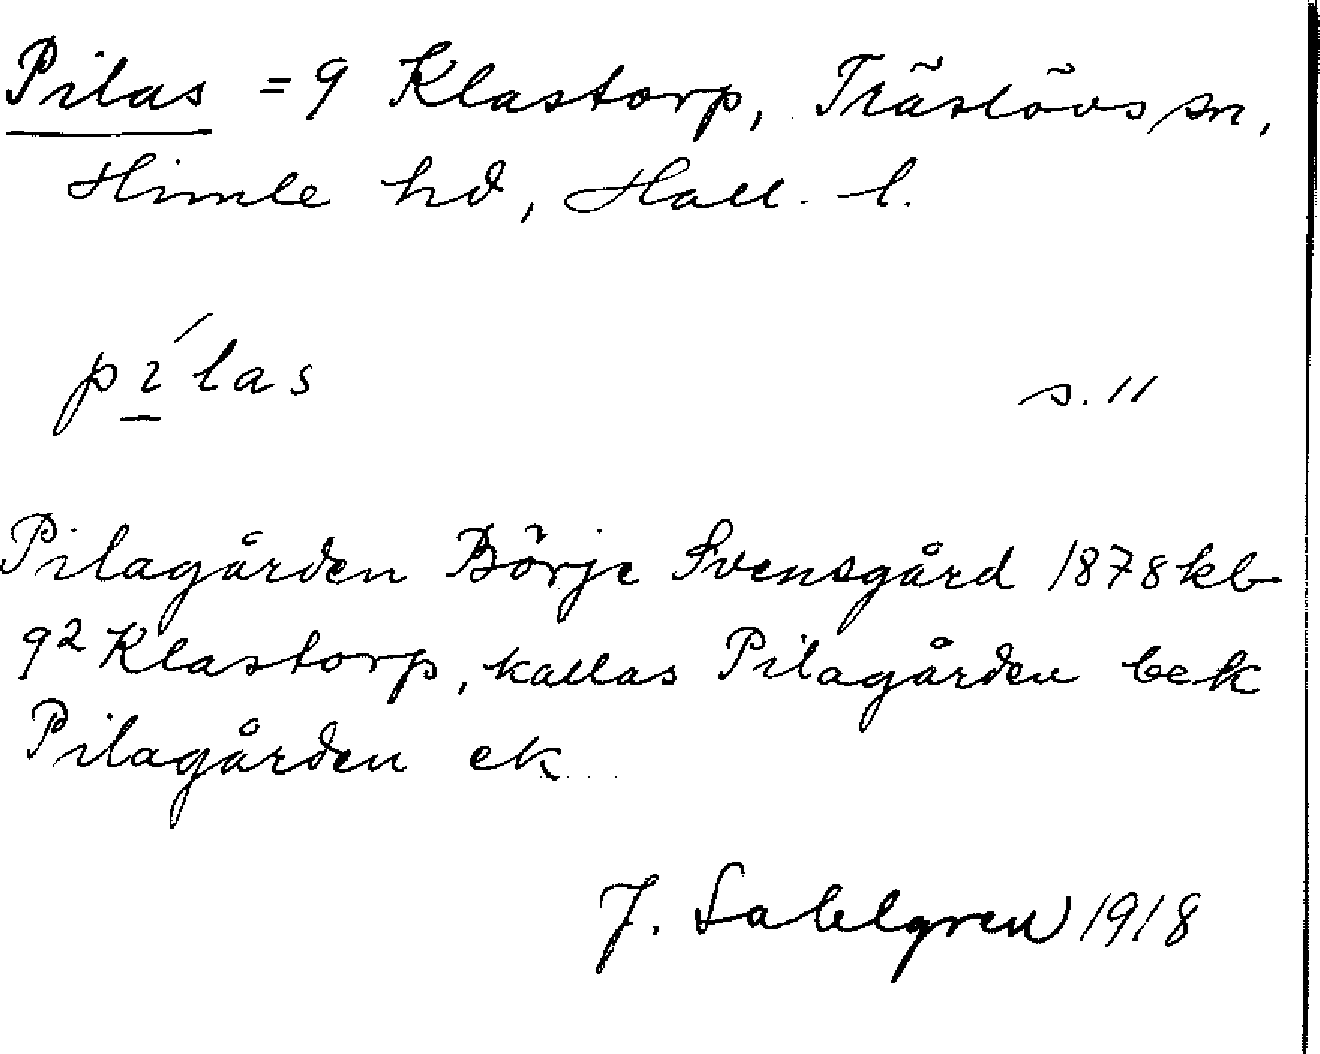 Pilas = 9 Klastorp, Träslövs sn,
Himle hd, Hall. l.
pílas s. 11
Pilagården Börje Svensgård 1878 kb
9² Klastorp, kallas Pilagården bek
Pilagården ek
J. Sahlgren 1918